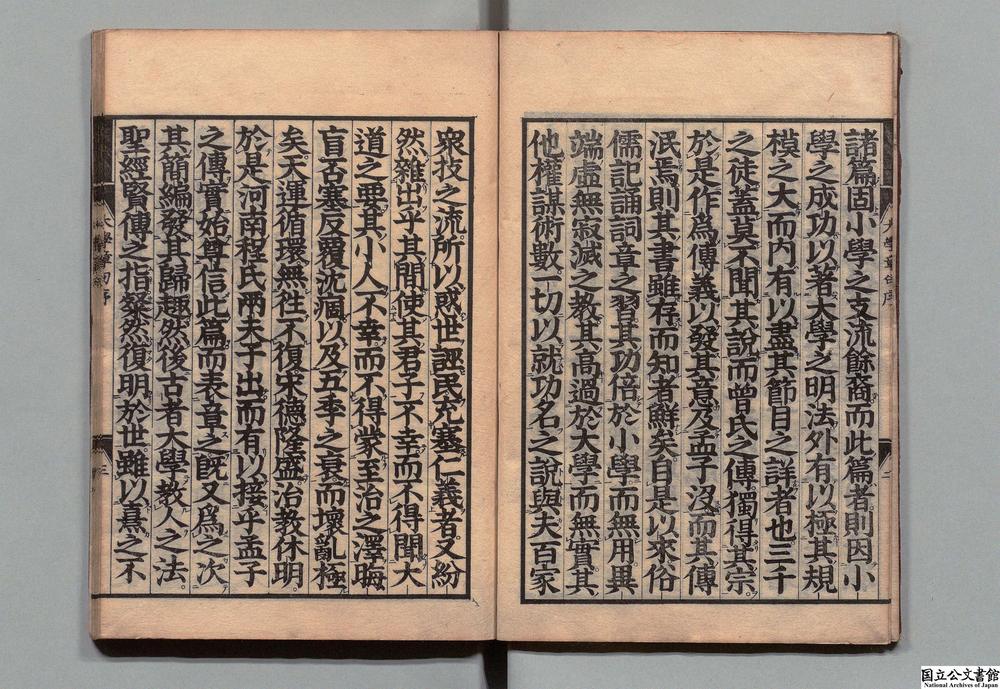 諸篇固小學之支流餘裔而此篇者則因小
學之成功以著大學之明法外有以極其規
模之大而內有以盡其節目之詳者也三千
之徒蓋莫不聞其說而曾氏之傳獨得其宗
於是作爲傳義以發其意及孟子沒而其傳
泯焉則其書雖存而知者鮮矣自是以來俗
儒記誦詞章之習其功倍於小學而無用異
端虛無寂滅之教其高過於大學而無實其
他權謀術數一切以就功名之說與夫百家
大學章句序
二
衆技之流所以惑世誣民充塞仁義者又紛
然雜出乎其間使其君子不幸而不得聞大
道之要其小人不幸而不得蒙至治之澤晦
盲否塞反覆沈痼以及五季之衰而壞亂極
矣天運循環無徃不復宋德隆盛治教休明
於是河南程氏兩夫子出而有以接乎孟子
之傳實始尊信此篇而表章之旣又爲之次
其簡編發其歸趣然後古者大學教人之法
聖經賢傳之指粲然復明於世雖以熹之不
大學章句序
三
国立公文書館
National Archives of Japan